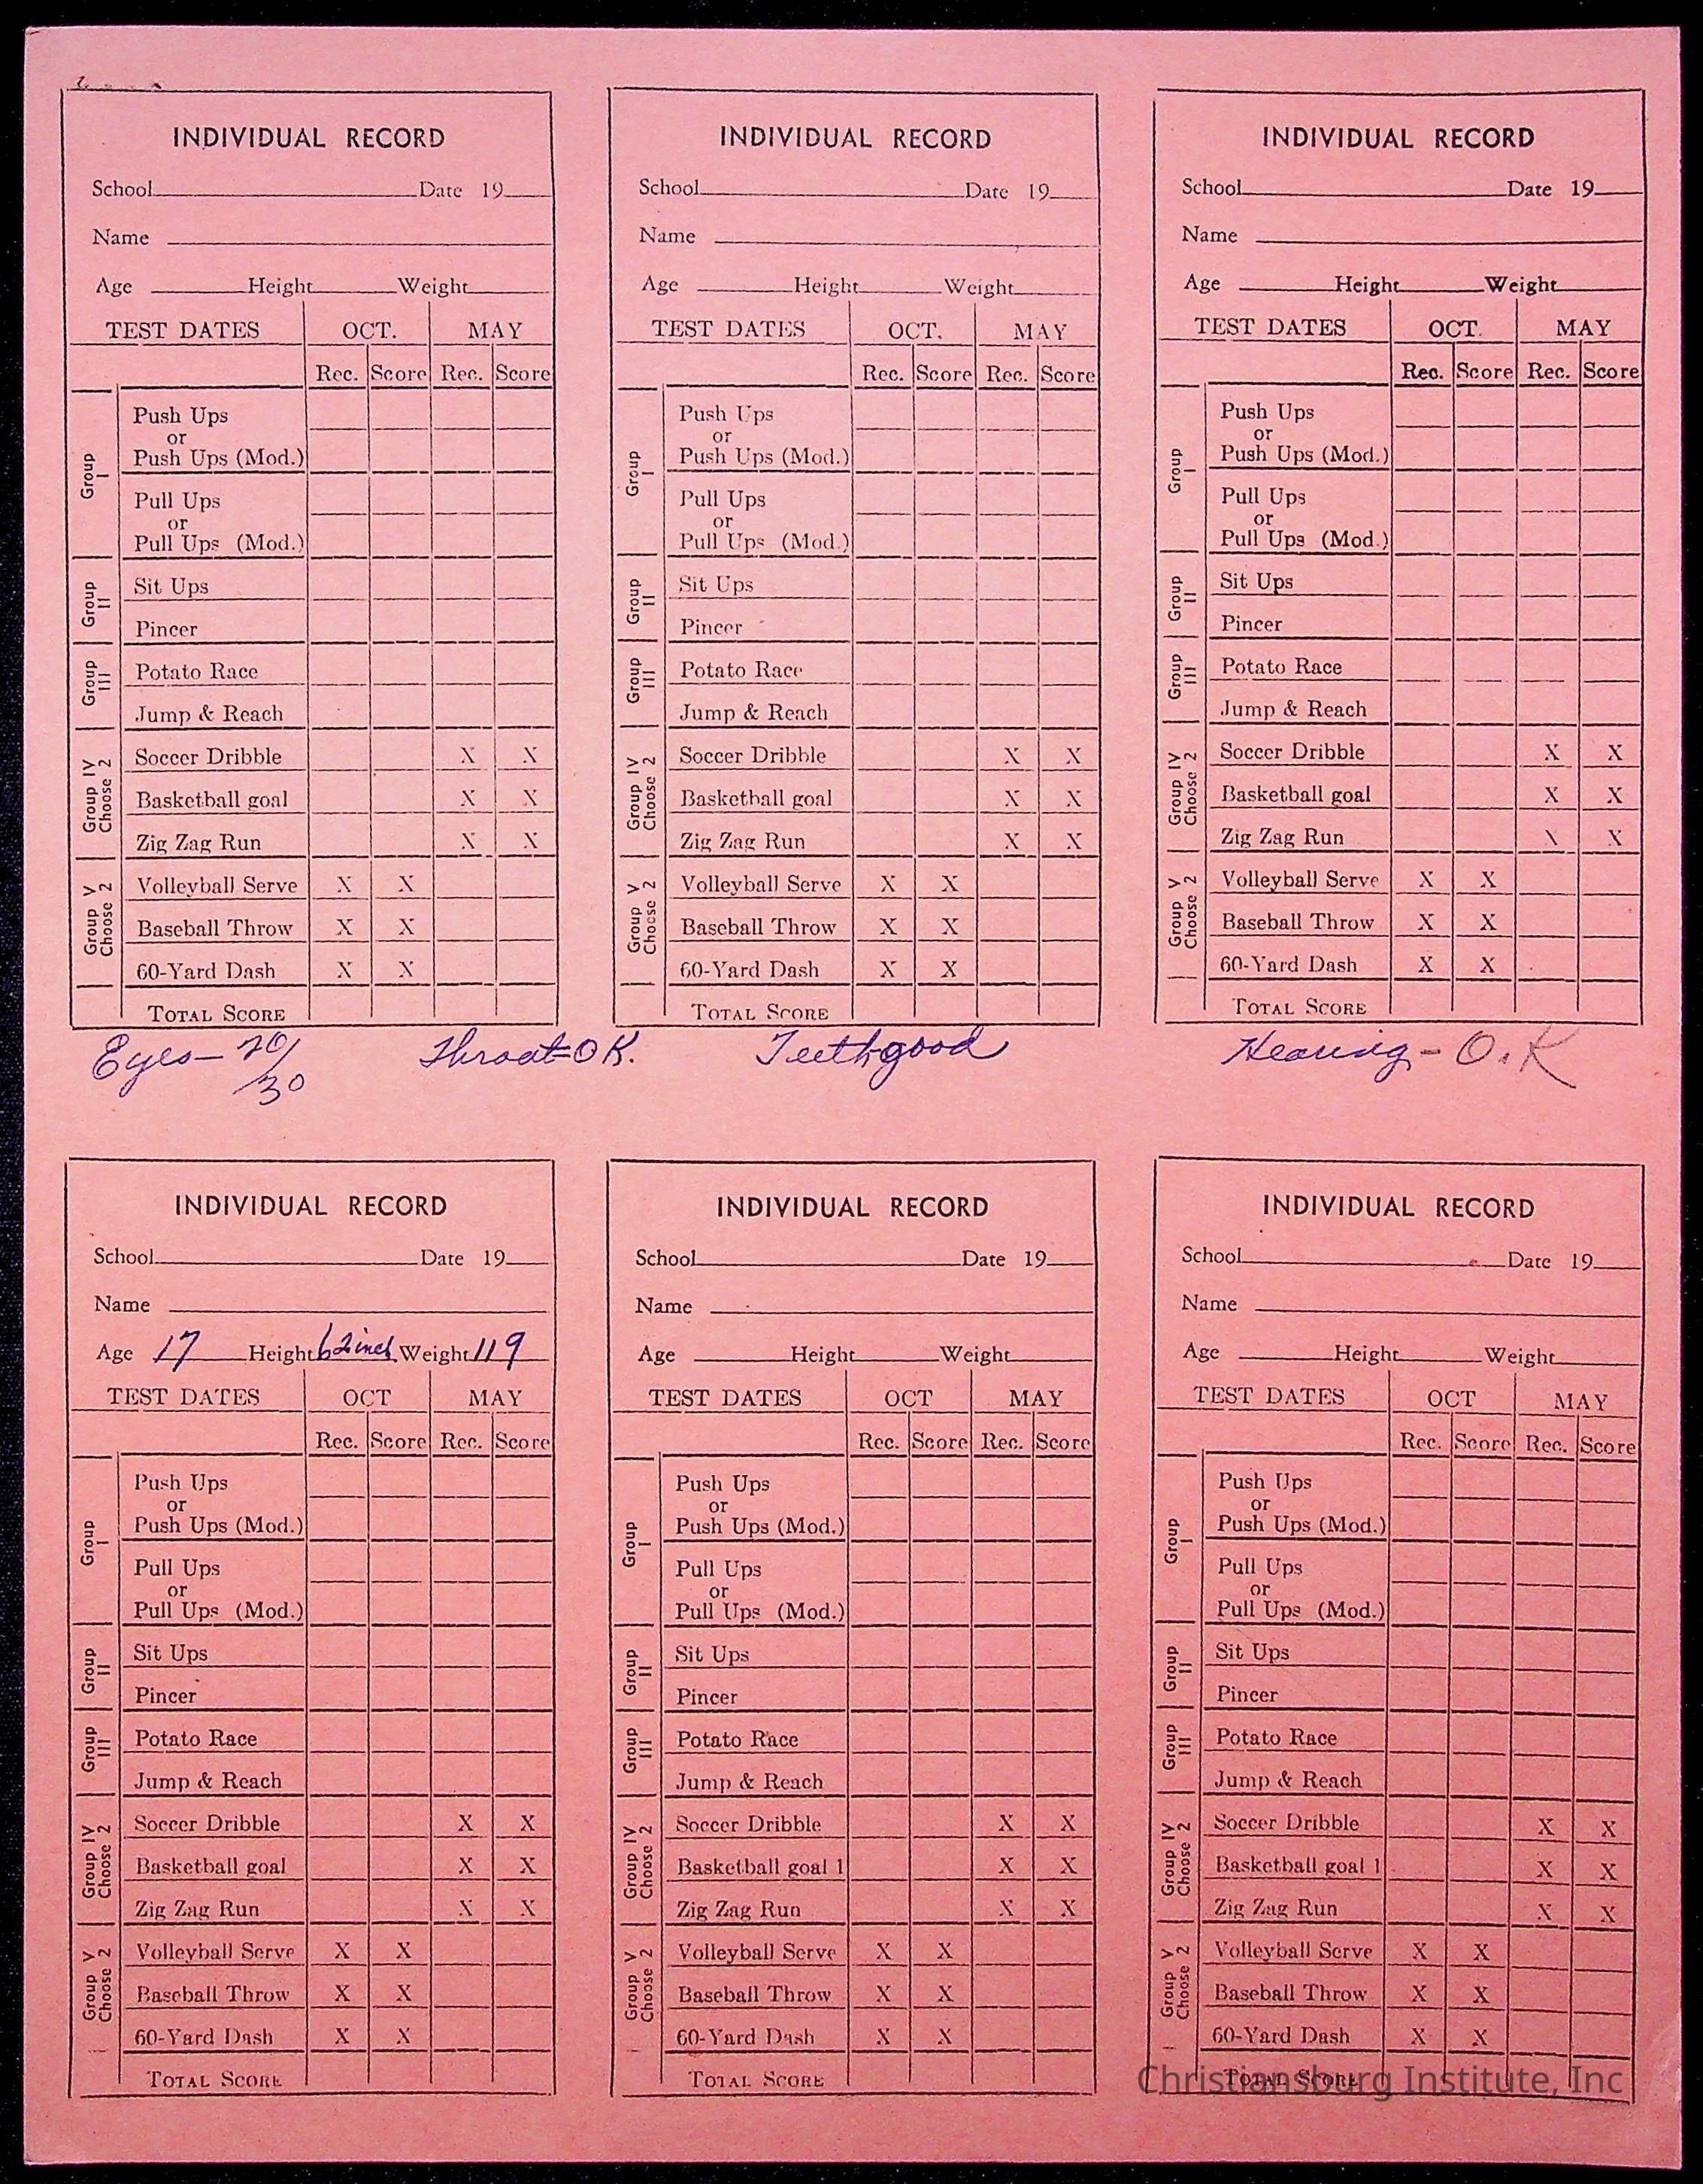 INDIVIDUAL RECORD
School Date 19
Name
Age Height Weight
TEST DATES OCT. MAY
Rec. Score Rec. Score
Group I
Push Ups
or
Push Ups (Mod.)
Pull Ups
or
Pull Ups (Mod.)
Group II
Sit Ups
Pincer
Group III
Potato Race
Jump & Reach
Group IV Choose 2
Soccer Dribble X X
Basketball goal X X
Zig Zag Run X X
Group V Choose 2
Volleyball Serve X X
Baseball Throw X X
60-Yard Dash X X
TOTAL SCORE
INDIVIDUAL RECORD
School Date 19
Name
Age Height Weight
TEST DATES OCT. MAY
Rec. Score Rec. Score
Group I
Push Ups
or
Push Ups (Mod.)
Pull Ups
or
Pull Ups (Mod.)
Group II
Sit Ups
Pincer
Group III
Potato Race
Jump & Reach
Group IV Choose 2
Soccer Dribble X X
Basketball goal X X
Zig Zag Run X X
Group V Choose 2
Volleyball Serve X X
Baseball Throw X X
60-Yard Dash X X
TOTAL SCORE
INDIVIDUAL RECORD
School Date 19
Name
Age Height Weight
TEST DATES OCT. MAY
Rec. Score Rec. Score
Group I
Push Ups
or
Push Ups (Mod.)
Pull Ups
or
Pull Ups (Mod.)
Group II
Sit Ups
Pincer
Group III
Potato Race
Jump & Reach
Group IV Choose 2
Soccer Dribble X X
Basketball goal X X
Zig Zag Run X X
Group V Choose 2
Volleyball Serve X X
Baseball Throw X X
60-Yard Dash X X
TOTAL SCORE
Eyes - 20/30 Throat=OK. Teeth good Hearing - O.K
INDIVIDUAL RECORD
School Date 19
Name
Age 17 Height 62 inch Weight 119
TEST DATES OCT MAY
Rec. Score Rec. Score
Group I
Push Ups
or
Push Ups (Mod.)
Pull Ups
or
Pull Ups (Mod.)
Group II
Sit Ups
Pincer
Group III
Potato Race
Jump & Reach
Group IV Choose 2
Soccer Dribble X X
Basketball goal X X
Zig Zag Run X X
Group V Choose 2
Volleyball Serve X X
Baseball Throw X X
60-Yard Dash X X
TOTAL SCORE
INDIVIDUAL RECORD
School Date 19
Name
Age Height Weight
TEST DATES OCT MAY
Rec. Score Rec. Score
Group I
Push Ups
or
Push Ups (Mod.)
Pull Ups
or
Pull Ups (Mod.)
Group II
Sit Ups
Pincer
Group III
Potato Race
Jump & Reach
Group IV Choose 2
Soccer Dribble X X
Basketball goal 1 X X
Zig Zag Run X X
Group V Choose 2
Volleyball Serve X X
Baseball Throw X X
60-Yard Dash X X
TOTAL SCORE
INDIVIDUAL RECORD
School Date 19
Name
Age Height Weight
TEST DATES OCT MAY
Rec. Score Rec. Score
Group I
Push Ups
or
Push Ups (Mod.)
Pull Ups
or
Pull Ups (Mod.)
Group II
Sit Ups
Pincer
Group III
Potato Race
Jump & Reach
Group IV Choose 2
Soccer Dribble X X
Basketball goal 1 X X
Zig Zag Run X X
Group V Choose 2
Volleyball Serve X X
Baseball Throw X X
60-Yard Dash X X
TOTAL SCORE
Christiansburg Institute, Inc